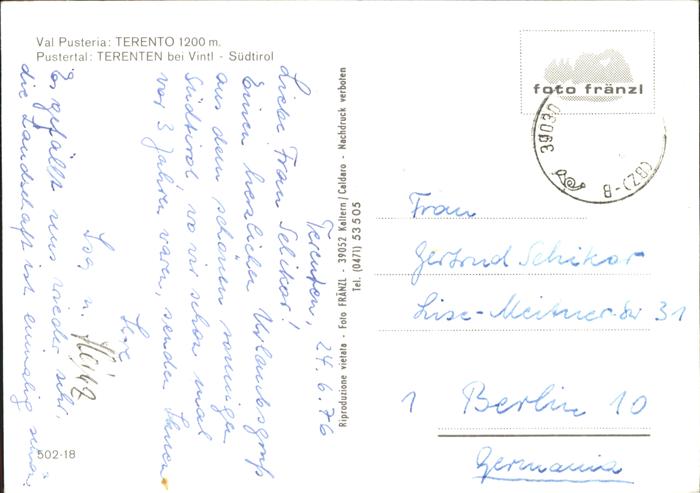 Val Pusteria: TERENTO 1200 m.
Pustertal: TERENTEN bei Vintl - Südtirol
Terenten, 24.6.76
Liebe Frau Schikor!
Einen herzlichen Urlaubsgruß
aus dem schönen sonnigen
Südtirol, wo wir schon mal
vor 3 Jahren waren, senden Ihnen
Ihre
Log u.
Es gefällt uns wieder sehr,
die Landschaft ist einmalig schön.
502-18
Riproduzione vietata - Foto FRÄNZL - 39052 Kaltern/Caldaro - Nachdruck verboten
Tel. (0471) 53505
foto fränzl
39030
(BZ)-B
Frau
Gertrud Schikor
Lise-Meitner-Str 31
1 Berlin 10
Germania